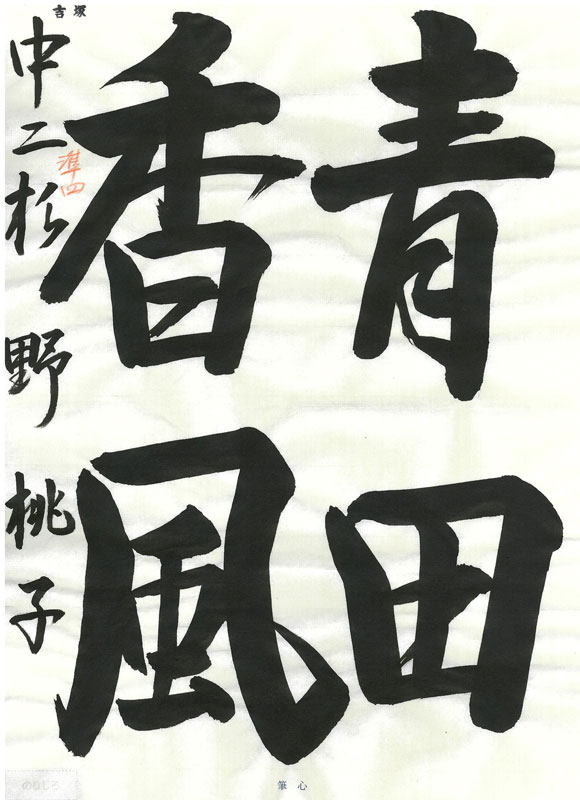 青田
香風
中二 杉野 桃子
準四
吉塚
筆心
のりしろ